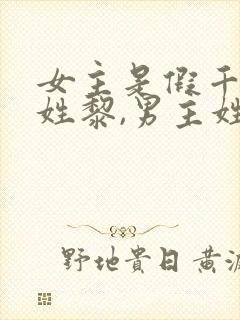 女主是假千
姓黎,男主姓
野地貴日黄